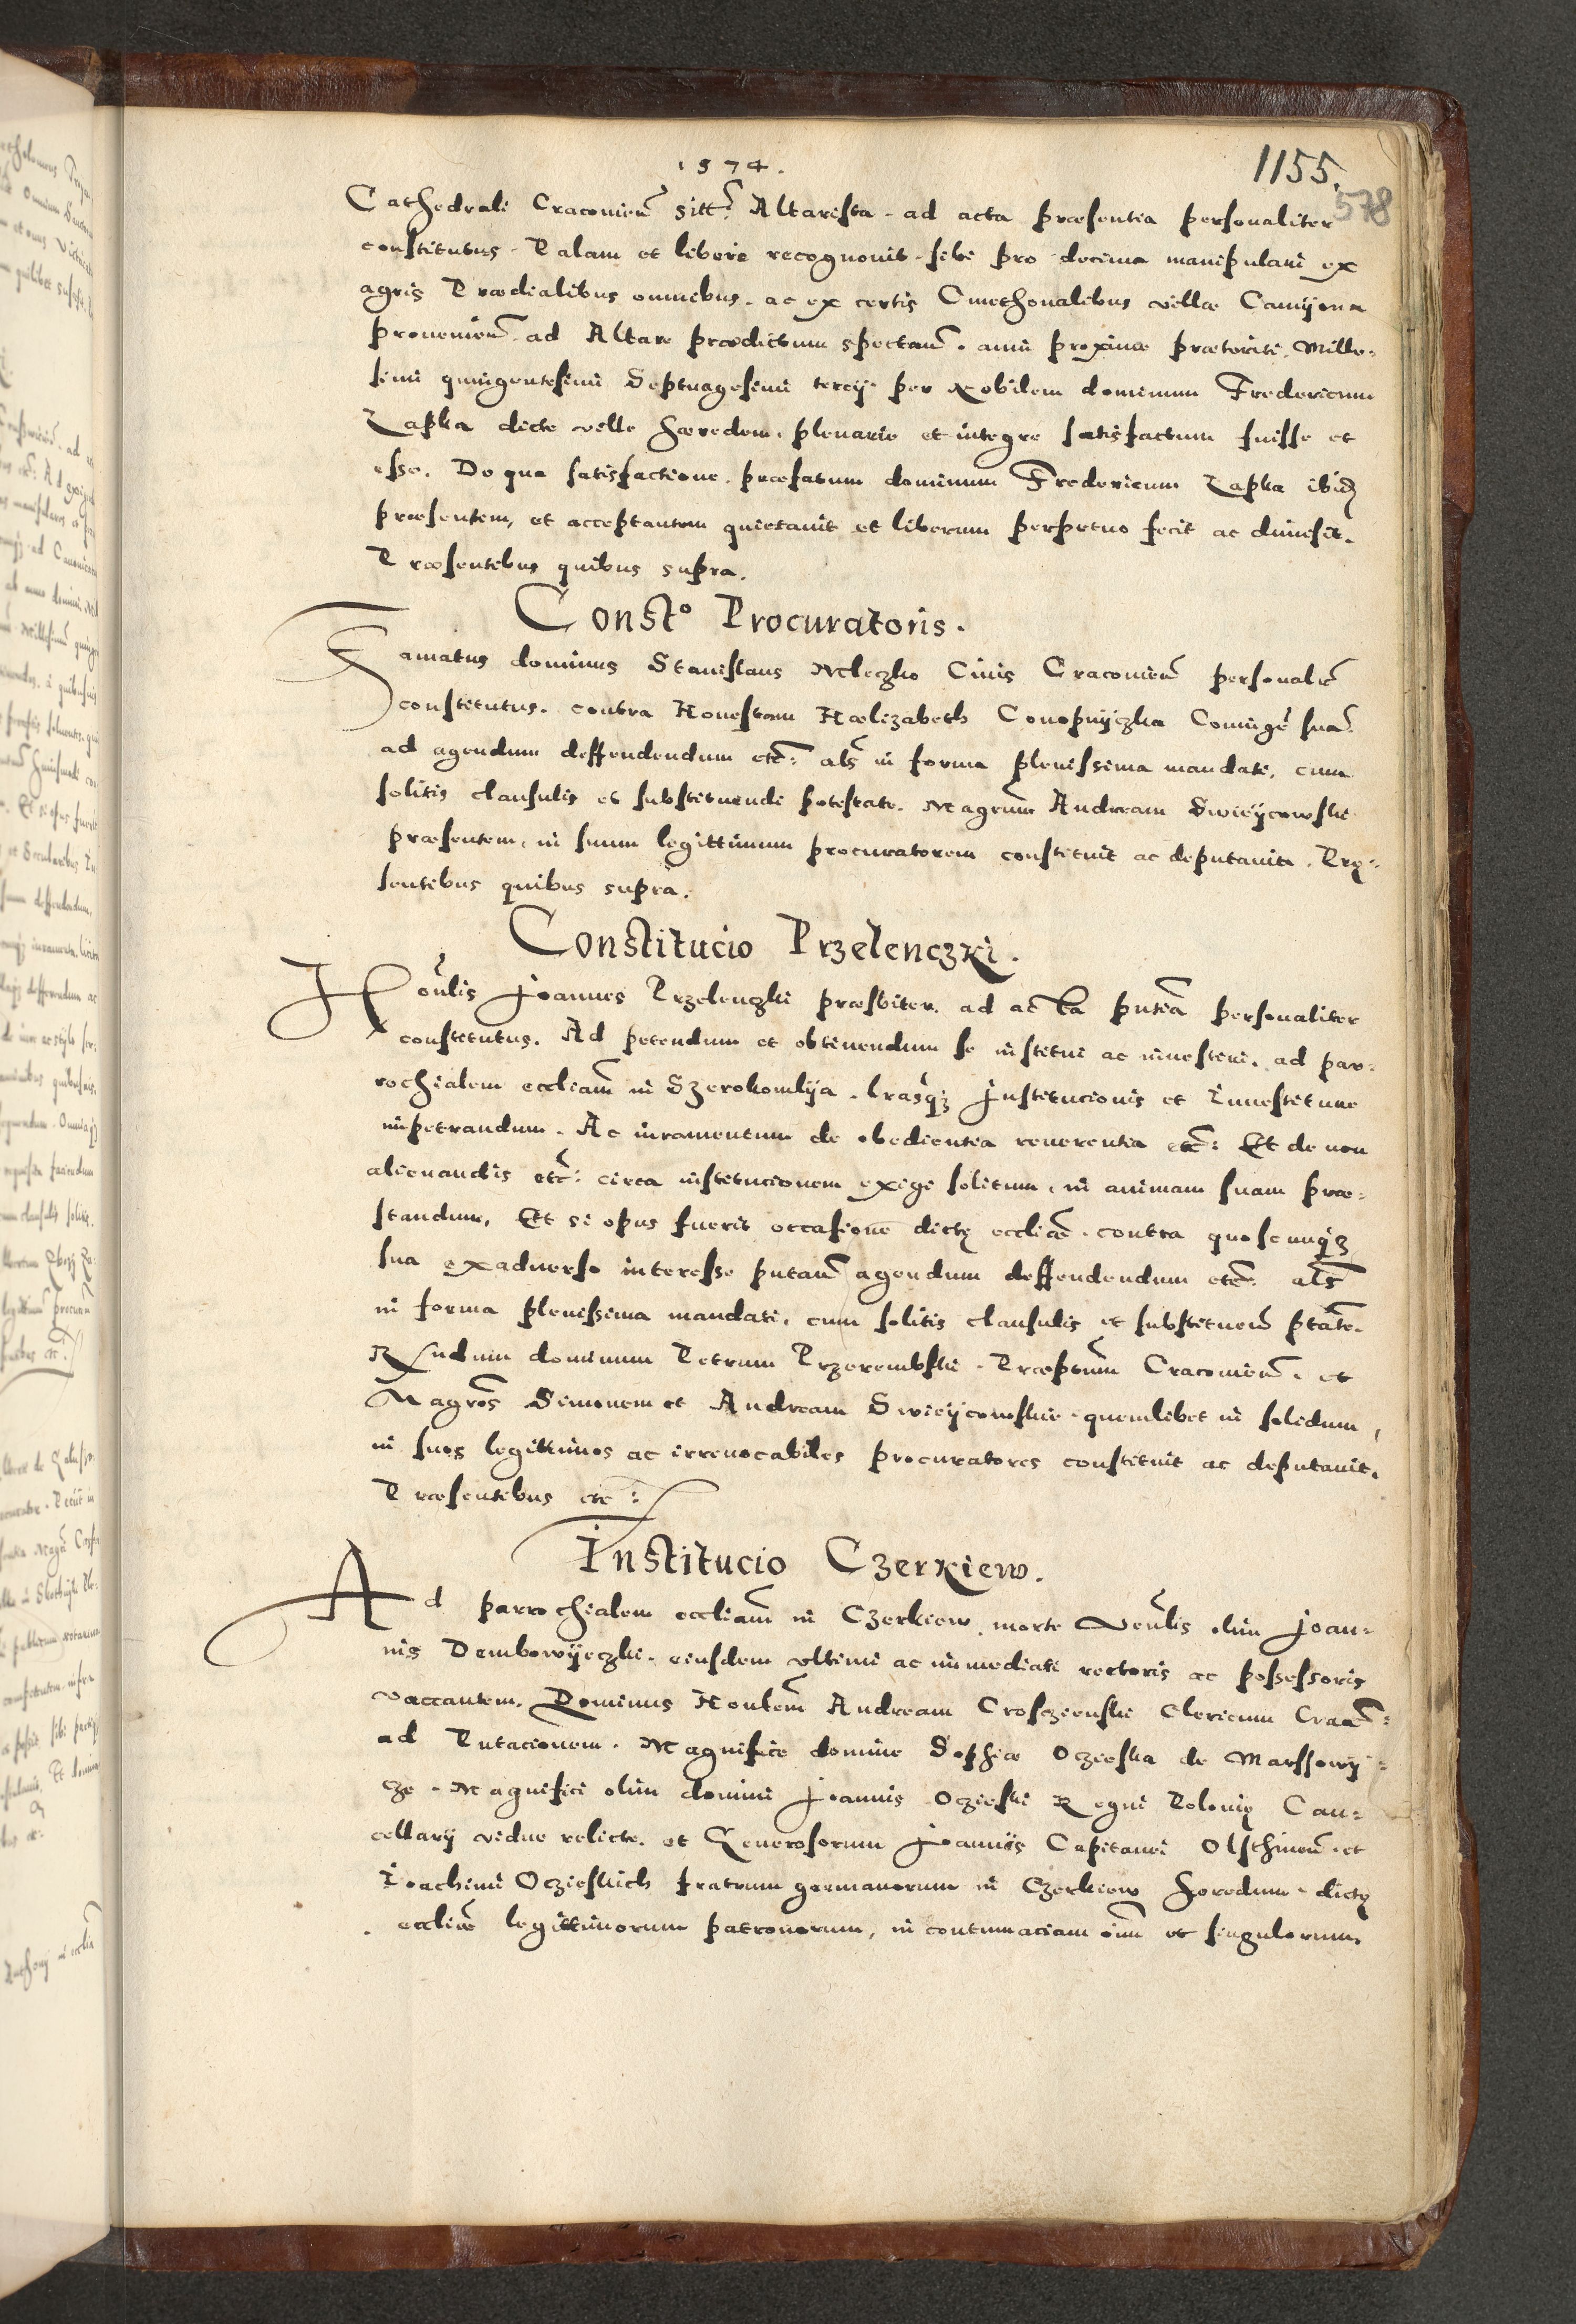 1574.
1155.
578
Cathedrali Cracovien̄ sitt̄: Altarista. ad acta præsentia personaliter
constitutus. Palam et libere recognovit. sibi pro decima manipulari ex
agris Prædialibus omnibus. ac ex certis Cmethonalibus villæ Camÿona
provenien̄. ad Altare prædictum spectan̄. anni proximæ præteriti. Mille-
simi quingentesimi Septuagesimi tercÿ. per Nobilem dominum Fredericum
Rapka dicte ville hæredem. plenarie et integre satisfactum fuisse et
esse. De qua satisfactione. præfatum dominum Fredericum Rapka ibid
præsentem, et acceptantem quietavit et liberum perpetuo fecit ac dimisit.
Præsentibus quibus supra.
Const.º Procuratoris.
Famatus dominus Stanislaus Mleczko Civis Cracovien̄ personalr̄
constitutus. contra Honestam Hælizabeth Conopnÿczka Coniugē suā
ad agendum deffendendum etc̄: als̄ in forma plenissima mandati. cum
solitis clausulis et substituendi potestate. Magrūm Andream Swieÿcowski
præsentem. in suum legittimum procuratorem constituit ac deputavit. Prę-
sentibus quibus supra.
Constitucio Przelenczki.
Hon̄lis Joannes Przelenczki præsbiter. ad acta pn̄tia personaliter
constitutus. Ad petendum et obtinendum se institui ac investiri. ad par-
rochialem ecclīam in Szerokomlÿa. lrāsq3 Institucionis et Investiture
impetrandum. Ac iuramentum de obedientia reverentia etc̄: Et de non
alienandis etc̄: circa institucionem exigi solitum. in animam suam præ-
standum. Et si opus fuerit occasione dictę ecclīæ. contra quoscunq3
sua exadverso interesse putan̄ agendum deffendendum etc̄: als̄
in forma plenissima mandati. cum solitis clausulis et substituen̄ ptāte.
Rn̄dum dominum Petrum Przerembski. Præptūm Cracovien̄. et
Magrōs Simonem et Andream Swieÿcowskie. quemlibet in solidum,
in suos legittimos ac irrevocabiles procuratores constituit ac deputavit.
Præsentibus etc:
Institucio Czerkiew.
Ad parrochialem ecclīam in Czerkiew morte Ven̄lis olim Joan-
nis Dembowÿeczki. eiusdem ultimi ac immediati rectoris ac possessoris
vaccantem. Dominus Honlēm Andream Crosczienski Clericum Crac̄:
ad Pn̄tacionem. Magnifice domine Sophiæ Oczieska de Marssowÿ-
cze. Magnifici olim domini Joannis Oczieski Regni Polonię Can-
cellarÿ vidue relicte. et Generosorum Joannis Capitanei Olsthinen̄. et
Ioachimi Oczieskich fratrum germanorum in Czerkiew hæredum. dictę
ecclīæ legittimorum patronorum, in contumaciam oīum et singulorum.